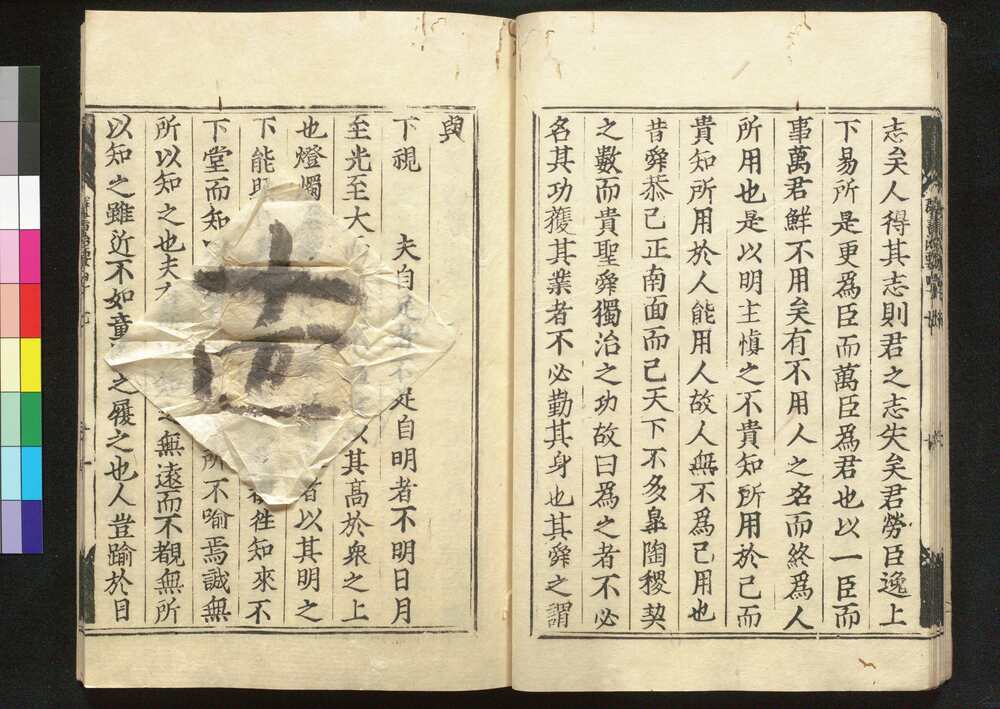 志矣人得其志則君之志失矣君勞臣逸上
下易所是更爲臣而萬臣爲君也以一臣而
事萬君鮮不用矣有不用人之名而終爲人
所用也是以明主愼之不貴知所用於己而
貴知所用於人能用人故人無不爲己用也
昔舜恭己正南面而已天下不多皐陶稷契
之數而貴聖舜獨治之功故曰爲之者不必
名其功獲其業者不必勤其身也其舜之謂
與
下視 夫自足者不足自明者不明日月
至光至大 以其高於衆之上
也燈燭 者以其明之
下能 往知來不
下堂而知 所不喻焉誠無
所以知之也夫 之無遠而不覩無所
以知之雖近不如童 之履之也人豈踰於日